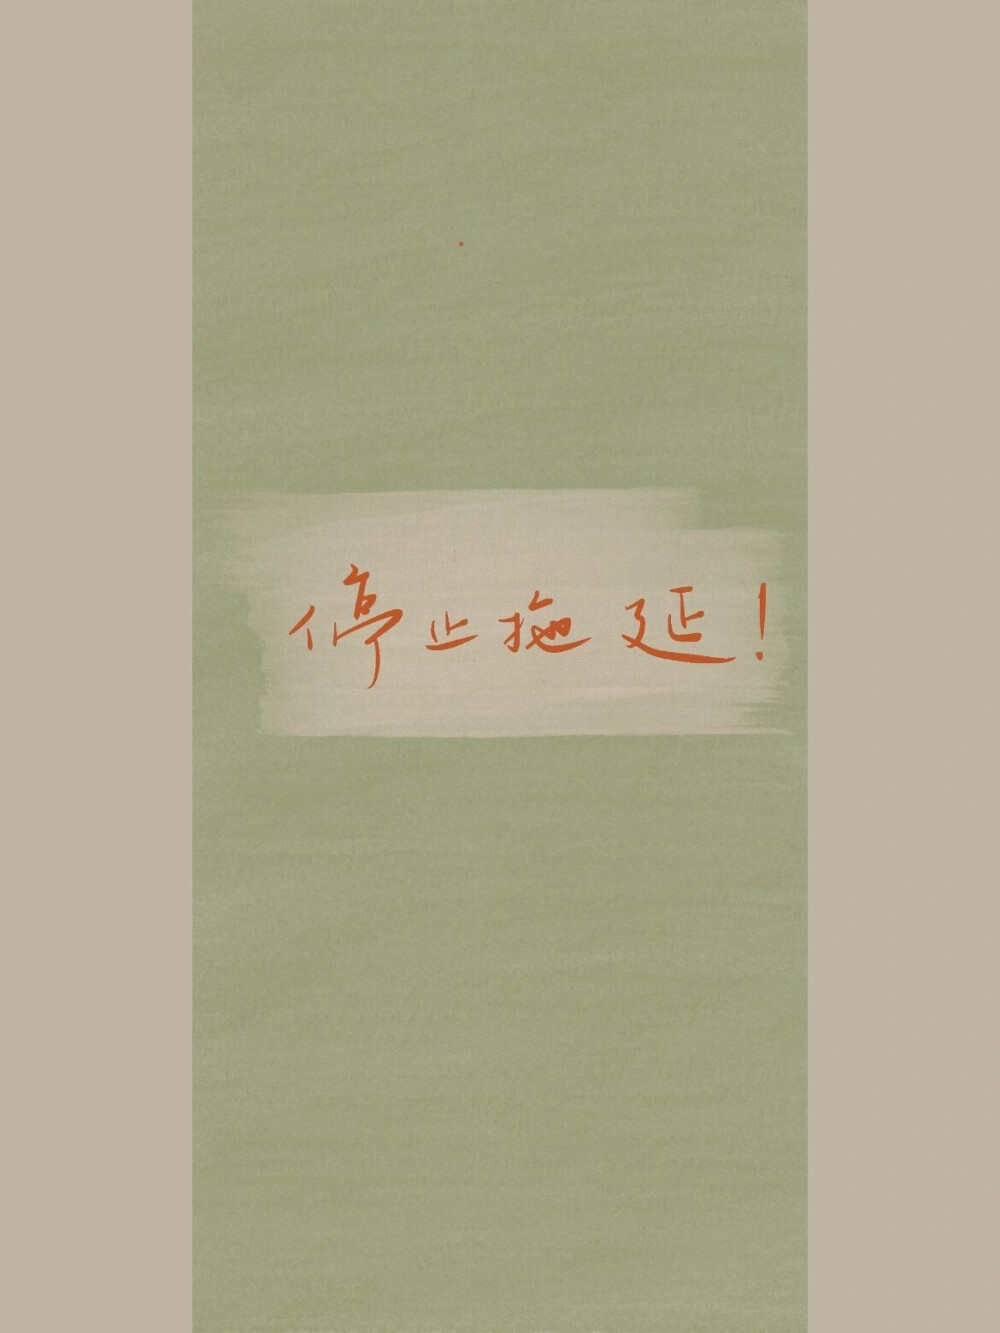 停止拖延！